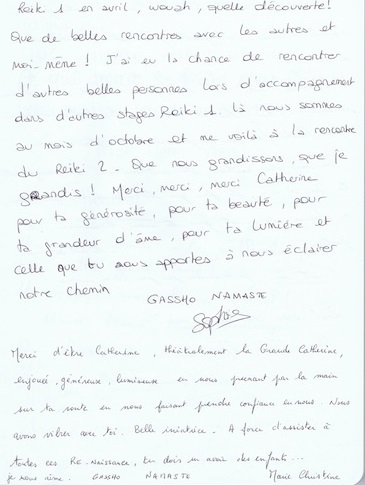 Reiki 1 en avril, wouah, quelle découverte!
Que de belles rencontres avec les autres et
moi-même ! J'ai eu la chance de rencontrer
d'autres belles personnes lors d'accompagnement
dans d'autres stages Reiki 1. là nous sommes
au mois d'octobre et me voilà à la rencontre
du Reiki 2. Que nous grandissons, que je
grandis ! Merci, merci, merci Catherine
pour ta générosité, pour ta beauté, pour
ta grandeur d'âme, pour ta lumière et
celle que tu nous apportes à nous éclairer
notre chemin
GASSHO NAMASTE
Merci d'être Catherine, théâtralement la Grande Catherine,
enjouée, généreuse, lumineuse en nous prenant par la main
sur ta route en nous faisant prendre confiance en nous. Nous
avons vibrer avec toi. Belle initiatrice. A force d'assister à
toutes ces Re-Naissance, tu dois en avoir des enfants...
je nous aime. GASSHO NAMASTE Marie Christine